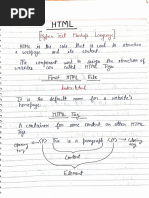 HTML
[Hyper Text Markup Language]
HTML is the code that is used to structure
a webpage and its content.
The component used to design the structure of
websites are called HTML Tags.
First HTML File
index.html
It is the default name for a website's
homepage.
HTML Tag
A container for some content or other HTML
Tags
opening tag <p> This is a paragraph </p> Closing tag
Content
Element